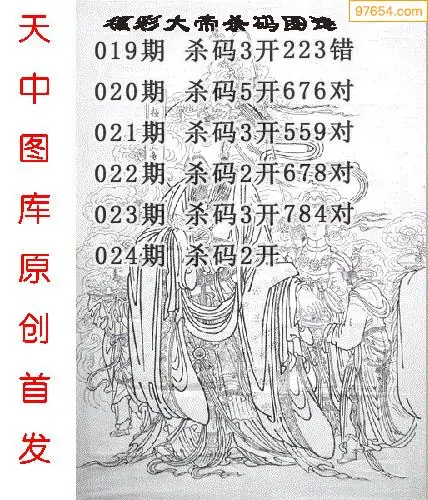 97654.com
福彩大帝杀码图谜
019期 杀码3开223错
020期 杀码5开676对
021期 杀码3开559对
022期 杀码2开678对
023期 杀码3开784对
024期 杀码2开
天中图库原创首发